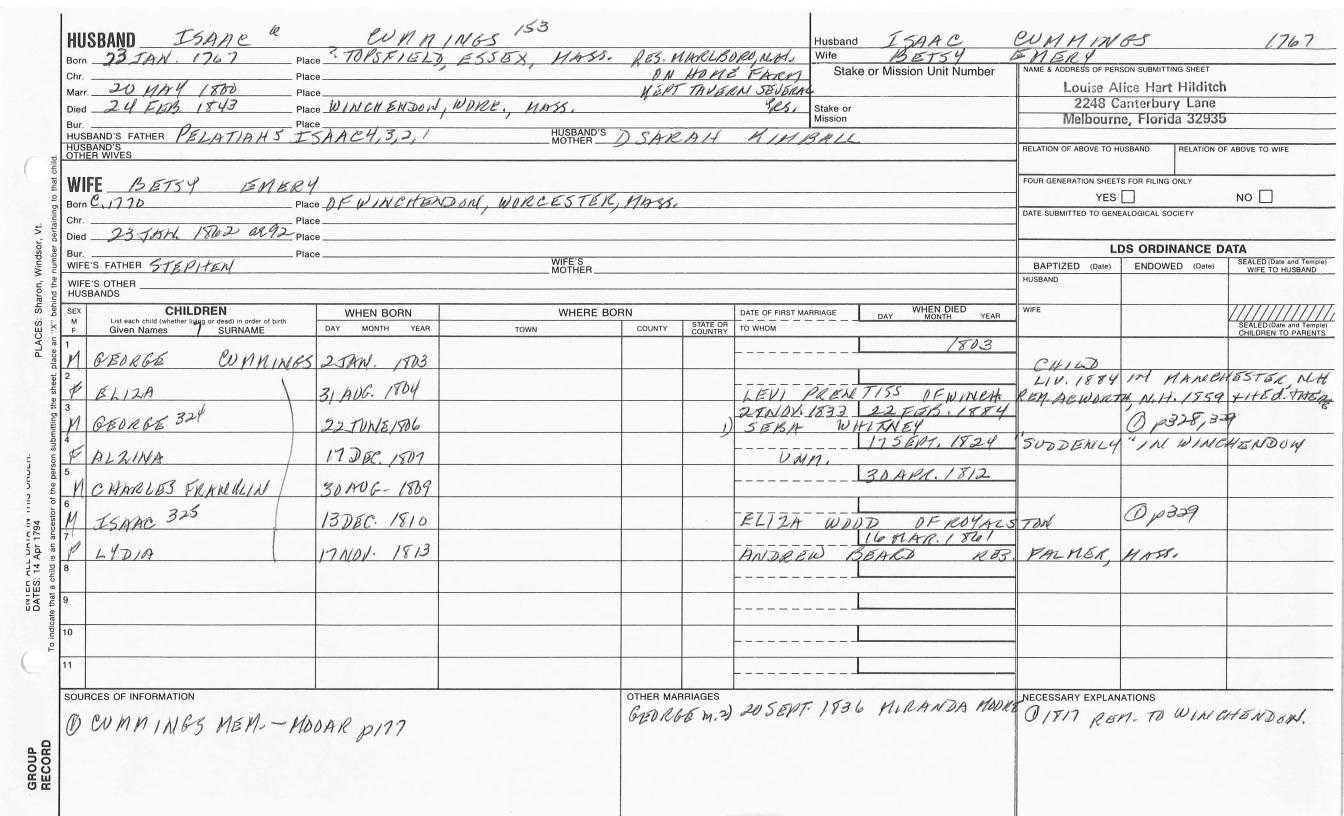 HUSBAND ISAAC CUMMINGS 153
Born 23 JAN. 1767 Place ? TOPSFIELD, ESSEX, MASS. RES. MARLBORO, N.H.
Chr. Place ON HOME FARM
Marr. 20 MAY 1800 Place KEPT TAVERN SEVERAL
Died 24 FEB 1843 Place WINCHENDON, WORC., MASS. YRS.
Bur. Place
HUSBAND'S FATHER PELATIAH5 ISAAC4,3,2,1 HUSBAND'S MOTHER SARAH KIMBALL
HUSBAND'S OTHER WIVES
Husband ISAAC CUMMINGS 1767
Wife BETSY EMERY
Stake or Mission Unit Number
Stake or Mission
NAME & ADDRESS OF PERSON SUBMITTING SHEET
Louise Alice Hart Hilditch
2248 Canterbury Lane
Melbourne, Florida 32935
RELATION OF ABOVE TO HUSBAND RELATION OF ABOVE TO WIFE
FOUR GENERATION SHEETS FOR FILING ONLY
YES NO
DATE SUBMITTED TO GENEALOGICAL SOCIETY
WIFE BETSY EMERY
Born C. 1770 Place OF WINCHENDON, WORCESTER, MASS.
Chr. Place
Died 23 JAN. 1862 ae 92 Place
Bur. Place
WIFE'S FATHER STEPHEN WIFE'S MOTHER
WIFE'S OTHER HUSBANDS
LDS ORDINANCE DATA
BAPTIZED (Date) ENDOWED (Date) SEALED (Date and Temple) WIFE TO HUSBAND
HUSBAND
WIFE
SEALED (Date and Temple) CHILDREN TO PARENTS
SEX M F
CHILDREN
List each child (whether living or dead) in order of birth
Given Names SURNAME
WHEN BORN
DAY MONTH YEAR
WHERE BORN
TOWN COUNTY STATE OR COUNTRY
DATE OF FIRST MARRIAGE
TO WHOM
WHEN DIED
DAY MONTH YEAR
1 1803
M GEORGE CUMMINGS 2 JAN. 1803 CHILD
2 LIV. 1884 IN MANCHESTER, N.H
F ELIZA 31 AUG. 1804 LEVI PRENTISS OF WINCH REM. ACWORTH, N.H. 1859 + HE d. THERE
3 28 NOV. 1833 22 FEB. 1884
M GEORGE 324 22 JUNE 1806 1) SEBA WHITNEY ① p328,329
4 17 SEPT. 1824 "SUDDENLY" IN WINCHENDON
F ALZINA 17 DEC. 1807 UNM.
5 30 APR. 1812
M CHARLES FRANKLIN 30 AUG- 1809
6
M ISAAC 325 13 DEC. 1810 ELIZA WOOD OF ROYALSTON ① p329
7 16 MAR. 1861
F LYDIA 17 NOV. 1813 ANDREW BEARD RES. PALMER, MASS.
8
9
10
11
SOURCES OF INFORMATION
① CUMMINGS MEM. — MOOAR p177
OTHER MARRIAGES
GEORGE m. 2) 20 SEPT. 1836 MIRANDA MOORE
NECESSARY EXPLANATIONS
① 1817 REM. TO WINCHENDON.
PLACES: Sharon, Windsor, Vt.
DATES: 14 Apr 1794
To indicate that a child is an ancestor of the person submitting the sheet, place an "X" behind the number pertaining to that child.
GROUP RECORD